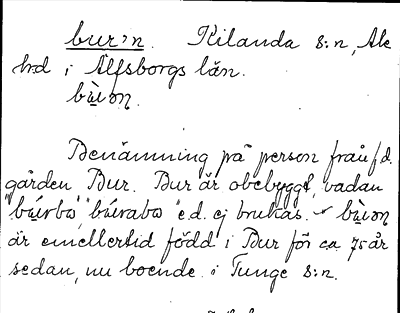 bur:n. Kilanda s:n, Ale
hrd i Älfsborgs län.
bùəṇ.
Benämning på person från f.d.
gården Bur. Bur är obebyggt, vadan
"búrbo", "búrabo" e.d. ej brukas. – bùəṇ
är emellertid född i Bur för ca 75 år
sedan, nu boende i Tunge s:n.